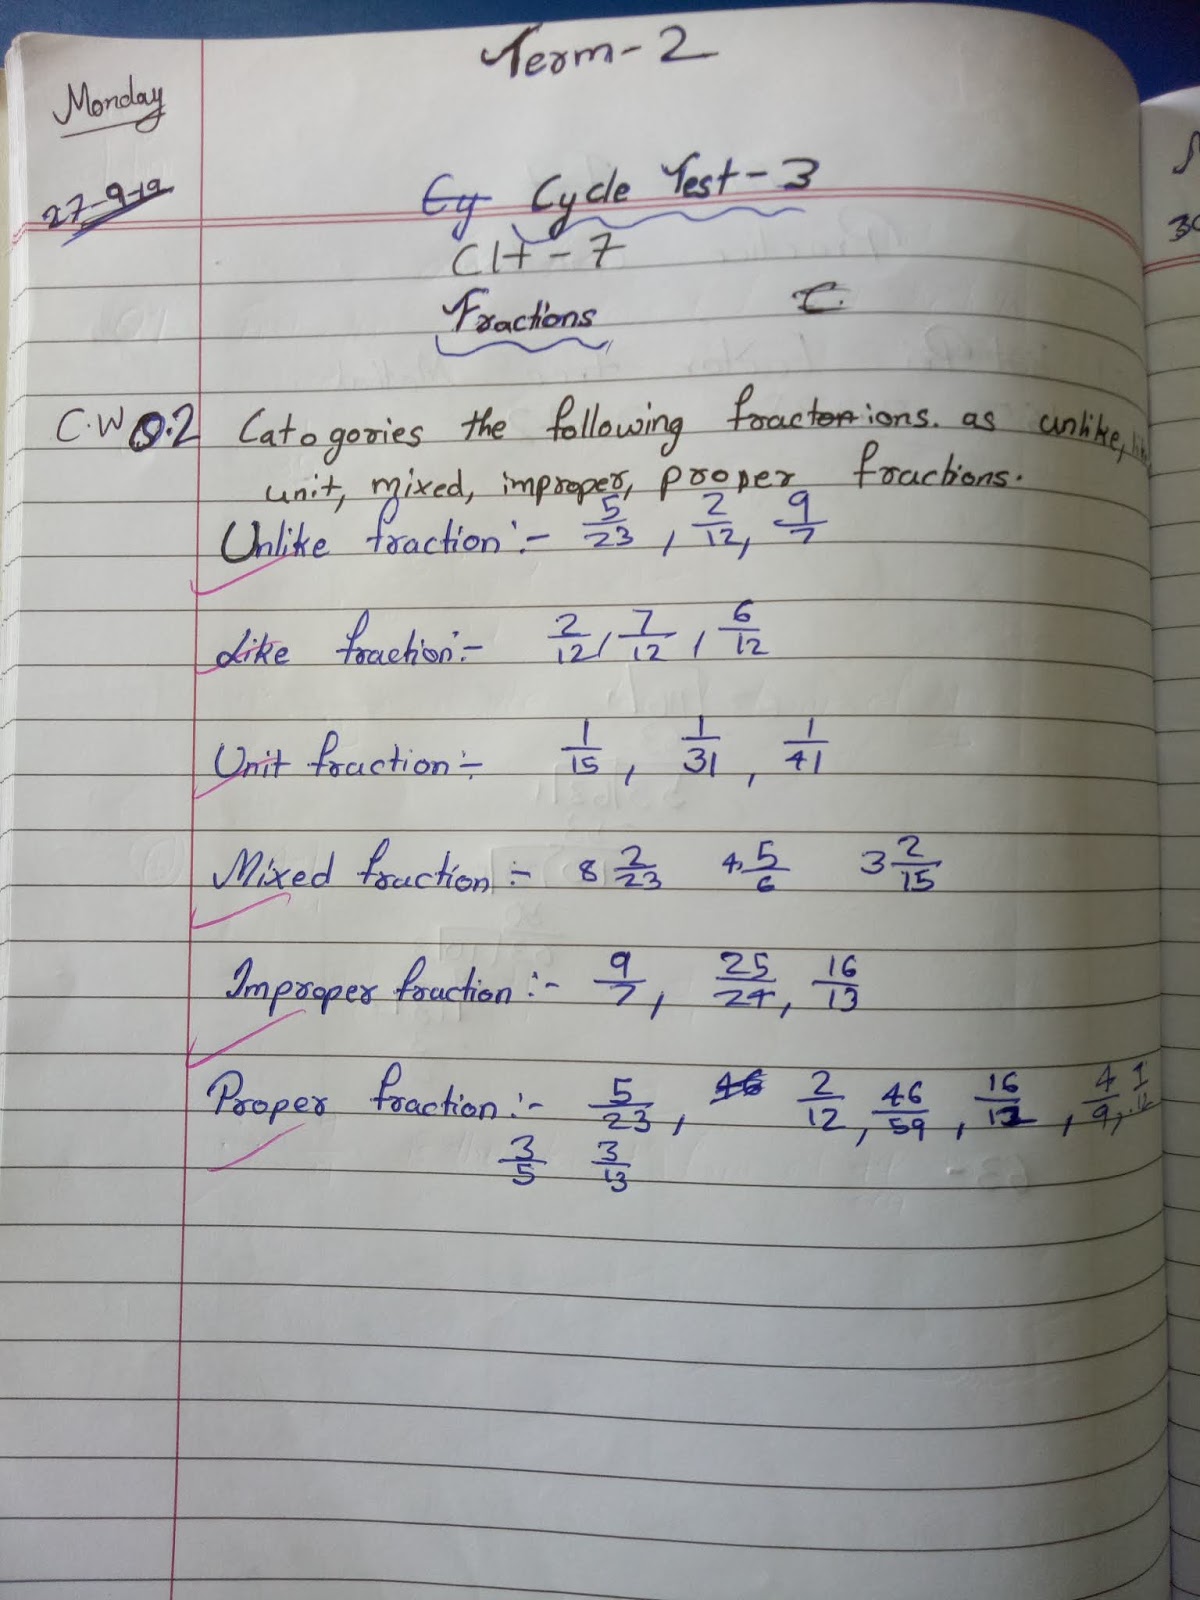 Term-2
Monday
27-9-19
Ey Cycle Test-3
Clt-7
Fractions
C.W Q.2 Catogories the following fractonions. as unlike, like
unit, mixed, improper, proper fractions.
Unlike fraction:- 5/23, 2/12, 9/7
Like fraction:- 2/12, 7/12, 6/12
Unit fraction:- 1/15, 1/31, 1/41
Mixed fraction:- 8 2/23 4 5/6 3 2/15
Improper fraction:- 9/7, 25/24, 16/13
Proper fraction:- 5/23, 46 2/12, 46/59, 16/, 4/9, 1/12
3/5 3/13